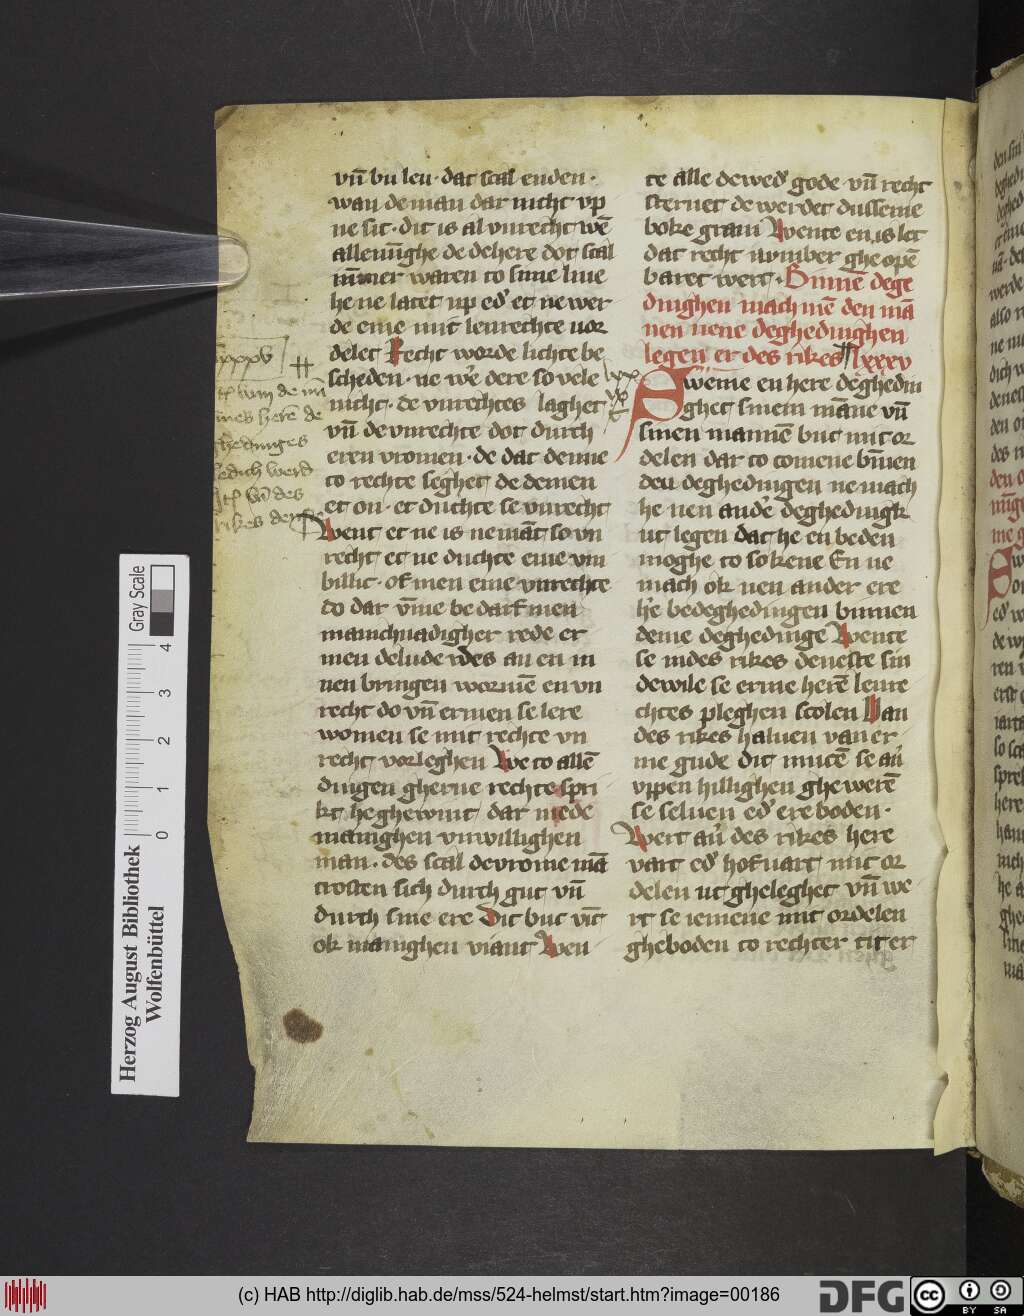 vn̄ bu leu · dat scal enden ·
wan deman dar nicht vp
ne sit · dit is al vnrecht wē
allenn̄ghe de dehere dot scal
ūmer waren to sime liue
he ne latet up ed' et ne wer
de eme mit lenrechte vor
delet Recht worde lichte be
scheden · ne we' dere so vele
nicht · de vnrechtes laghet
vn̄ de vnrechte dot durch
eren vromen · de dat denne
to rechte seghet de demen
et on · et duchte se vnrecht
Went et ne is nemāt so vn
recht et ne duchte eme vn
billic · of men eme vnrechte
do dar vm̄e be darf men
manichuadigher rede er
men delude des an en in
nen bringen wornmē en vn
recht do vn̄ ermen se lere
women se mit rechte vn
recht vorleghen We to allē
dingen gherne rechte spri
kt he ghewint dar mede
manighen vnwillighen
man · des scal de vrome mā
trosten sich durch gut vn̄
durch sine ere Dit but vit
ok manighen viant Wen
te alle dewed' gode vn̄ recht
sternet de werdet dusseme
boke gram Wente en is let
dat recht vmber ghe opē
baret wert · Binnē dege
dinghen mach mē den mā
nen nene deghedinghen
legen er des rikes lxxxv
Sweme en here deghedin
ghet sinem māne vn̄
sinen mannē but mit or
delen dar to comene bīnen
den deghedingen ne mach
he nen ande' deghedingk
ut legen dat he en beden
moghe to sokene En ne
mach ok nen ander ere
h'e bedeghedingen binnen
deme deghedinge Wente
se indes rikes deneste sin
dewile se erme herē lenre
chtes pleghen scolen Van
des rikes haluen van er
me gude dit mucē se an'
vppen hillighen ghe werē
se seluen ed' ere boden ·
Wert au' des rikes here
vart ed' hof vart mit or
delen ut gheleghet vn̄ we
rt se iemene mit ordelen
gheboden to rechter tit er
Herzog August Bibliothek
Wolfenbüttel
Gray Scale
0 1 2 3 4
(c) HAB http://diglib.hab.de/mss/524-helmst/start.htm?image=00186
DFG
cc BY SA